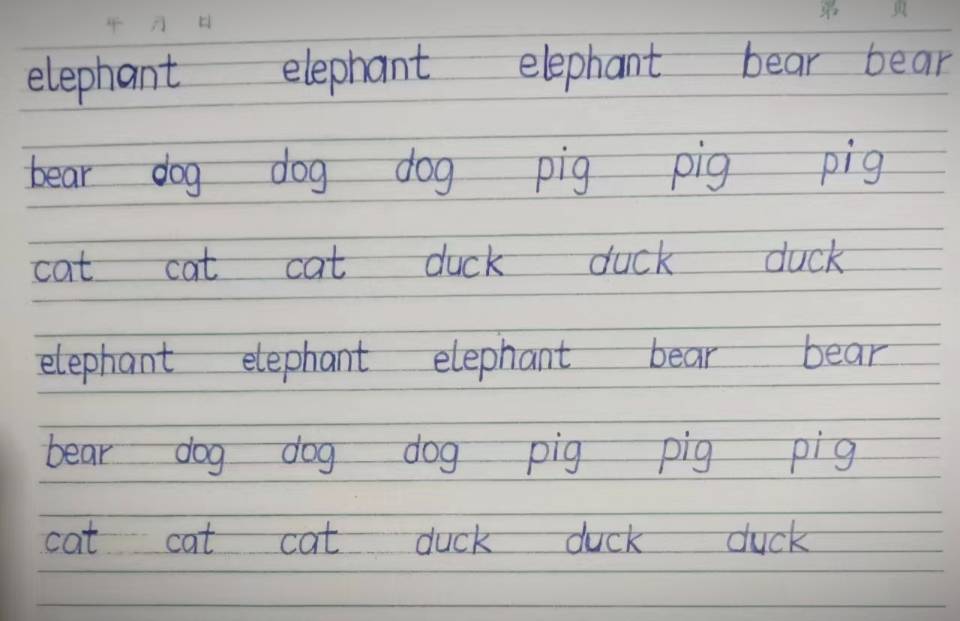 年 月 日 第 页
elephant elephant elephant bear bear
bear dog dog dog pig pig pig
cat cat cat duck duck duck
elephant elephant elephant bear bear
bear dog dog dog pig pig pig
cat cat cat duck duck duck